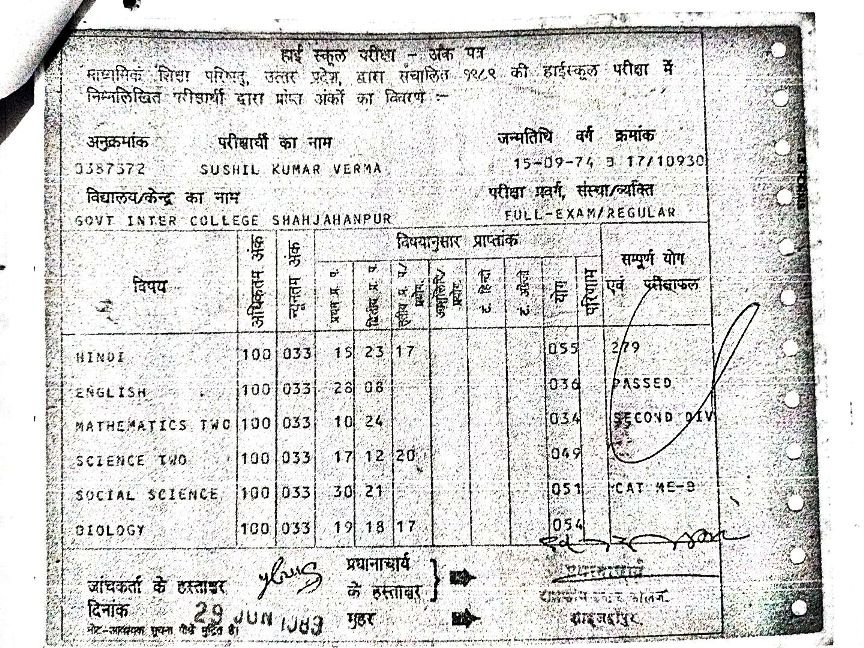 हाई स्कूल परीक्षा - अंक पत्र
माध्यमिक शिक्षा परिषद्, उत्तर प्रदेश, द्वारा संचालित १९८९ की हाईस्कूल परीक्षा में
निम्नलिखित परीक्षार्थी द्वारा प्राप्त अंकों का विवरण :-
अनुक्रमांक परीक्षार्थी का नाम जन्मतिथि वर्ग क्रमांक
0387372 SUSHIL KUMAR VERMA 15-09-74 B 17/10930
विद्यालय/केन्द्र का नाम परीक्षा प्रवर्ग, संस्था/व्यक्ति
GOVT INTER COLLEGE SHAHJAHANPUR FULL-EXAM/REGULAR
विषय अधिकतम अंक न्यूनतम अंक विषयानुसार प्राप्तांक सम्पूर्ण योग
एवं परीक्षाफल
प्रथम प्र. प. द्वितीय प्र. प. तृतीय प्र. प./ प्रयोग. योग परिणाम
HINDI 100 033 15 23 17 055 279
ENGLISH 100 033 28 08 036 PASSED
MATHEMATICS TWO 100 033 10 24 034 SECOND DIV
SCIENCE TWO 100 033 17 12 20 049
SOCIAL SCIENCE 100 033 30 21 051 CAT ME-B
BIOLOGY 100 033 19 18 17 054
जांचकर्ता के हस्ताक्षर प्रधानाचार्य
के हस्ताक्षर
दिनांक 29 JUN 1989 मुहर
नोट-आवश्यक सूचना पीछे मुद्रित है।